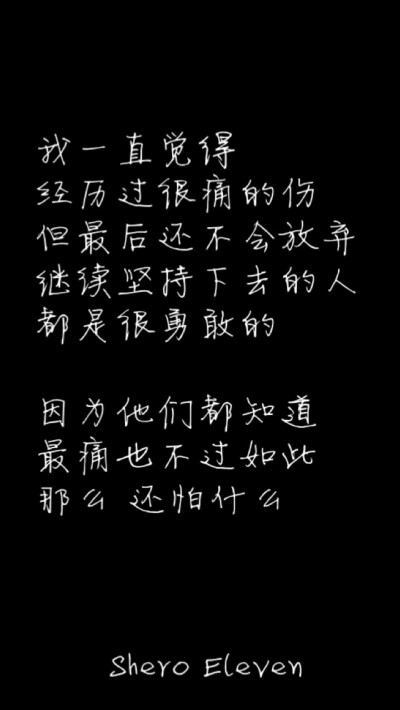 我一直觉得
经历过很痛的伤
但最后还不会放弃
继续坚持下去的人
都是很勇敢的
因为他们都知道
最痛也不过如此
那么 还怕什么
Shero Eleven